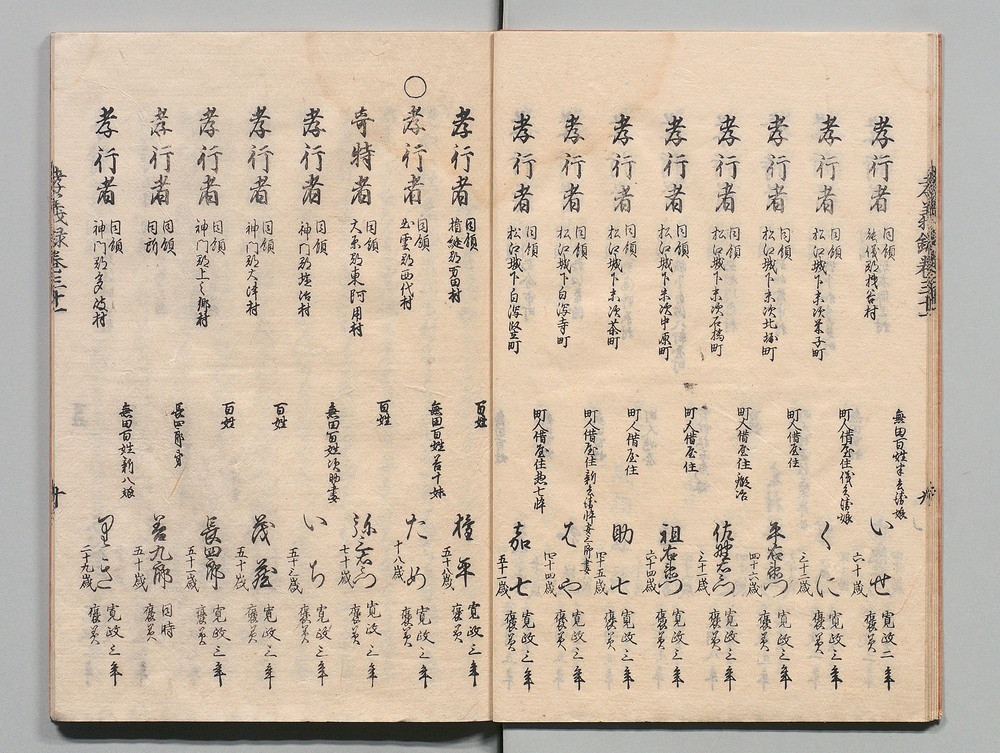 孝行者 同領 能儀郡機谷村 無田百姓半兵衛娘 いせ 六十歳 寛政二年 褒美
孝行者 同領 松江城下末次茶子町 町人借屋住儀兵衛娘 くに 三十三歳 寛政三年 褒美
孝行者 同領 松江城下末次北堀町 町人借屋住 平右衛門 四十六歳 寛政三年 褒美
孝行者 同領 松江城下末次石橋町 町人借屋住鍛冶 佐野右衛門 三十一歳 寛政三年 褒美
孝行者 同領 松江城下末次中原町 町人借屋住 祖右衛門 六十四歳 寛政三年 褒美
孝行者 同領 松江城下末次茶町 町人借屋住 助七 四十五歳 寛政三年 褒美
孝行者 同領 松江城下白潟寺町 町人借屋住新兵衛悴 妻 はや 四十四歳 寛政三年 褒美
孝行者 同領 松江城下白潟竪町 町人借屋住惣七悴 嘉七 五十一歳 寛政三年 褒美
孝行者 同領 楯縫郡万田村 百姓 権平 五十歳 寛政三年 褒美
○孝行者 同領 出雲郡西代村 無田百姓若十妹 ため 十八歳 寛政三年 褒美
奇特者 同領 大原郡東阿用村 百姓 弥右衛門 七十歳 寛政三年 褒美
孝行者 同領 神門郡塩冶村 無田百姓次助妻 いち 五十三歳 寛政三年 褒美
孝行者 同領 神門郡大津村 百姓 茂蔵 五十歳 寛政三年 褒美
孝行者 同領 神門郡上之郷村 百姓 長四郎 五十一歳 寛政三年 褒美
孝行者 同領 同所 長四郎弟 善九郎 五十歳 同時 褒美
孝行者 同領 神門郡多伎村 無田百姓新八娘 二十九歳 寛政三年 褒美
孝義録巻三十一